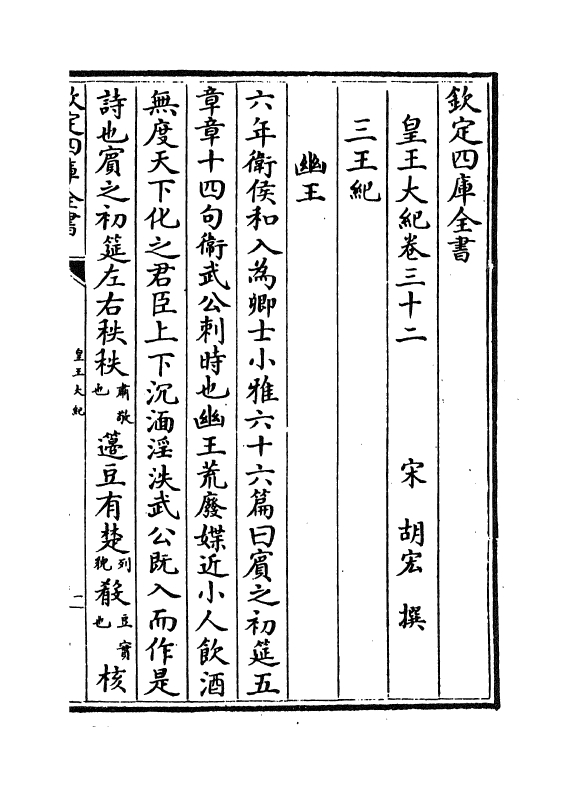 欽定四庫全書
皇王大紀卷三十二 宋 胡宏 撰
三王紀
幽王
六年衛侯和入為卿士小雅六十六篇曰賓之初筵五
章章十四句衛武公刺時也幽王荒廢媟近小人飲酒
無度天下化之君臣上下沉湎淫泆武公既入而作是
詩也賓之初筵左右秩秩肅敬也籩豆有楚列貌殽豆實也核
欽定四庫全書
皇王大紀